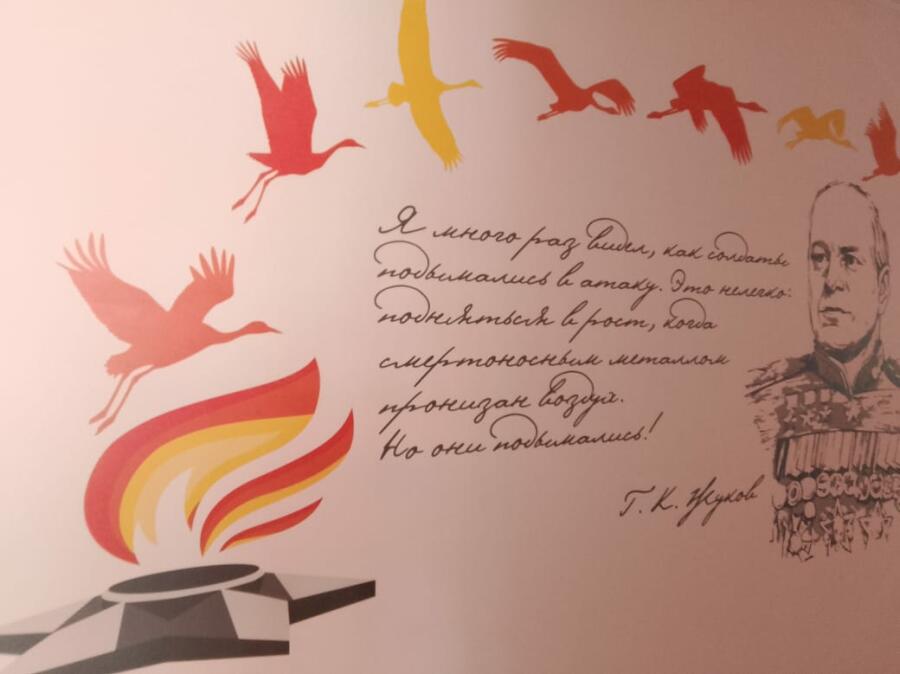 Я много раз видел, как солдаты
подымались в атаку. Это нелегко:
подняться в рост, когда
смертоносным металлом
пронизан воздух.
Но они подымались!
Г. К. Жуков